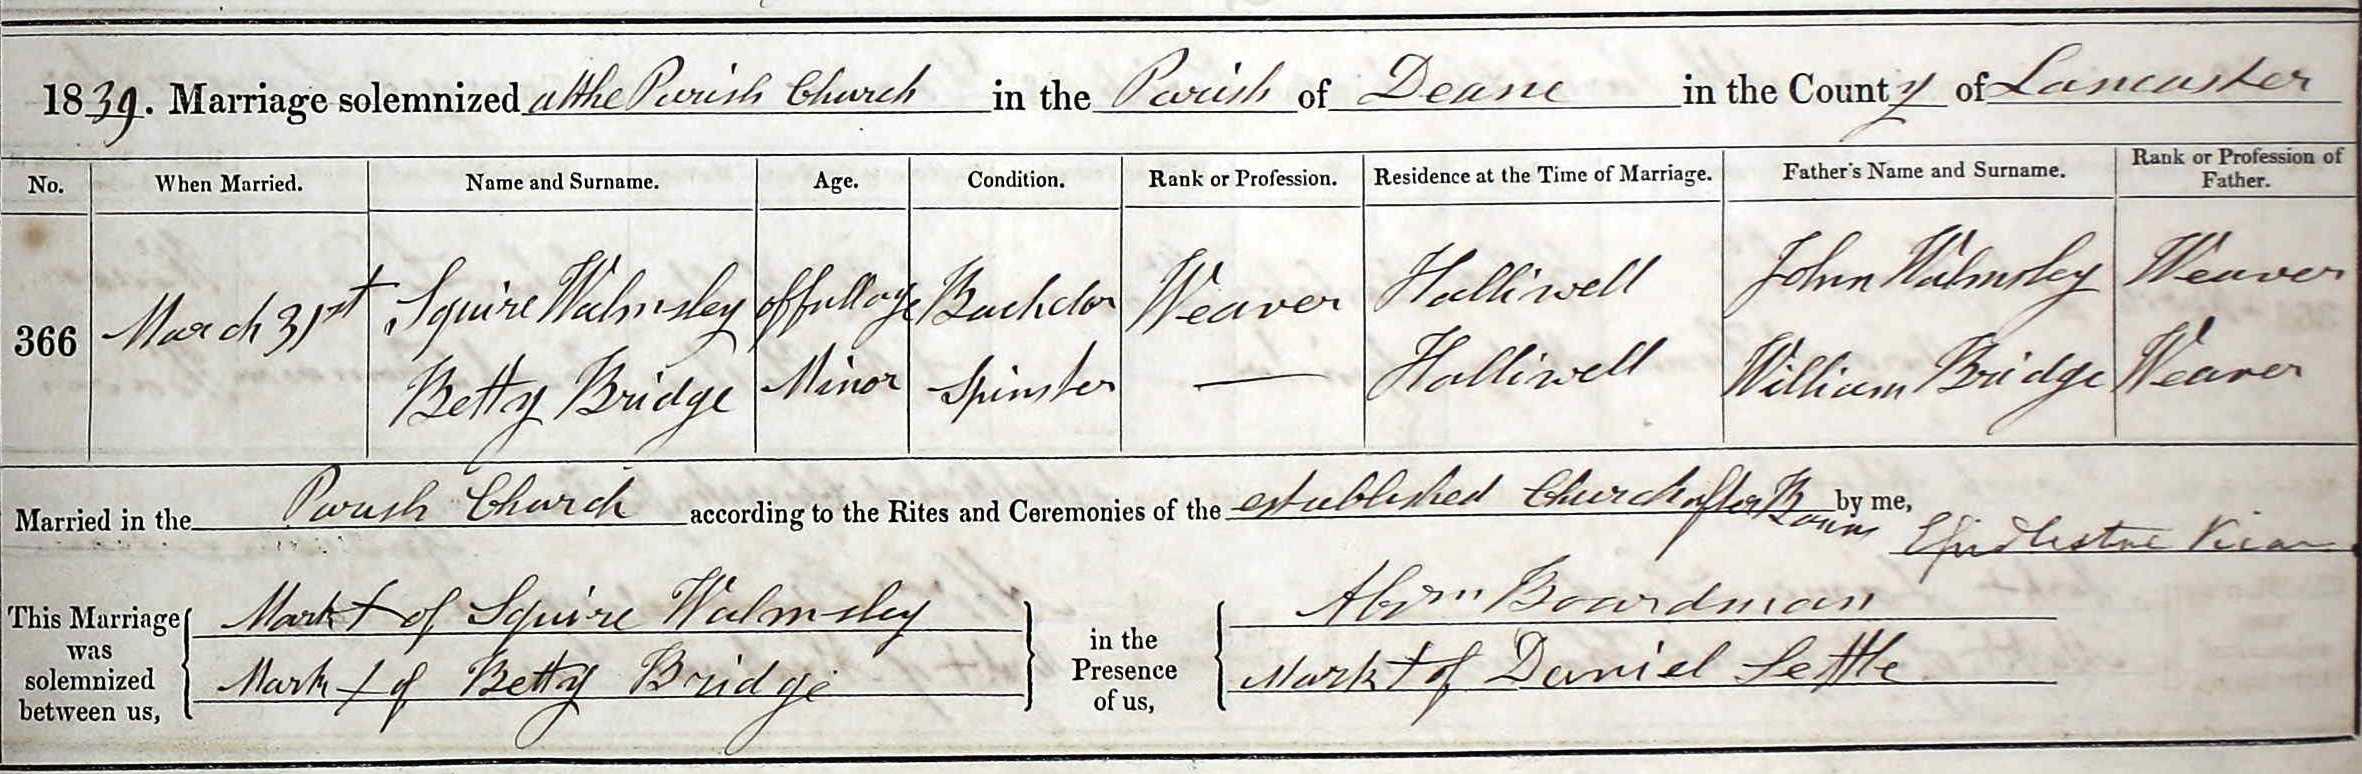 1839. Marriage solemnized at the Parish Church in the Parish of Deane in the County of Lancaster
No. When Married. Name and Surname. Age. Condition. Rank or Profession. Residence at the Time of Marriage. Father's Name and Surname. Rank or Profession of Father.
Squire Walmsley of full age Bachelor Weaver Halliwell John Walmsley Weaver
366 March 31st
Betty Bridge Minor Spinster — Halliwell William Bridge Weaver
Married in the Parish Church according to the Rites and Ceremonies of the established Church after Banns by me,
Vicar
This Marriage was solemnized between us,
Mark + of Squire Walmsley
Mark + of Betty Bridge
in the Presence of us,
Abrm Boardman
Mark + of Daniel Settle